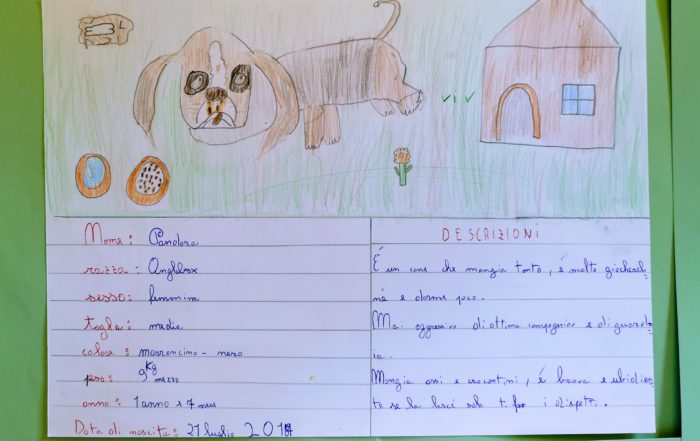 Nome: Pandora
razza: Anglebox
sesso: femmina
taglia: media
colore: marroncino - nero
peso: 9 Kg mezzo
anno: 1 anno e 7 mesi
Data di nascita: 27 luglio
DESCRIZIONI
É un cane che mangia tanto, é molto giocherel
na e dorme poco.
Mai aggressiva di ottima compagnia e di guardia
ia.
Mangia ossi e crocantini, é brava e ubidien
te se la lasci sola ti fa i dispetti.